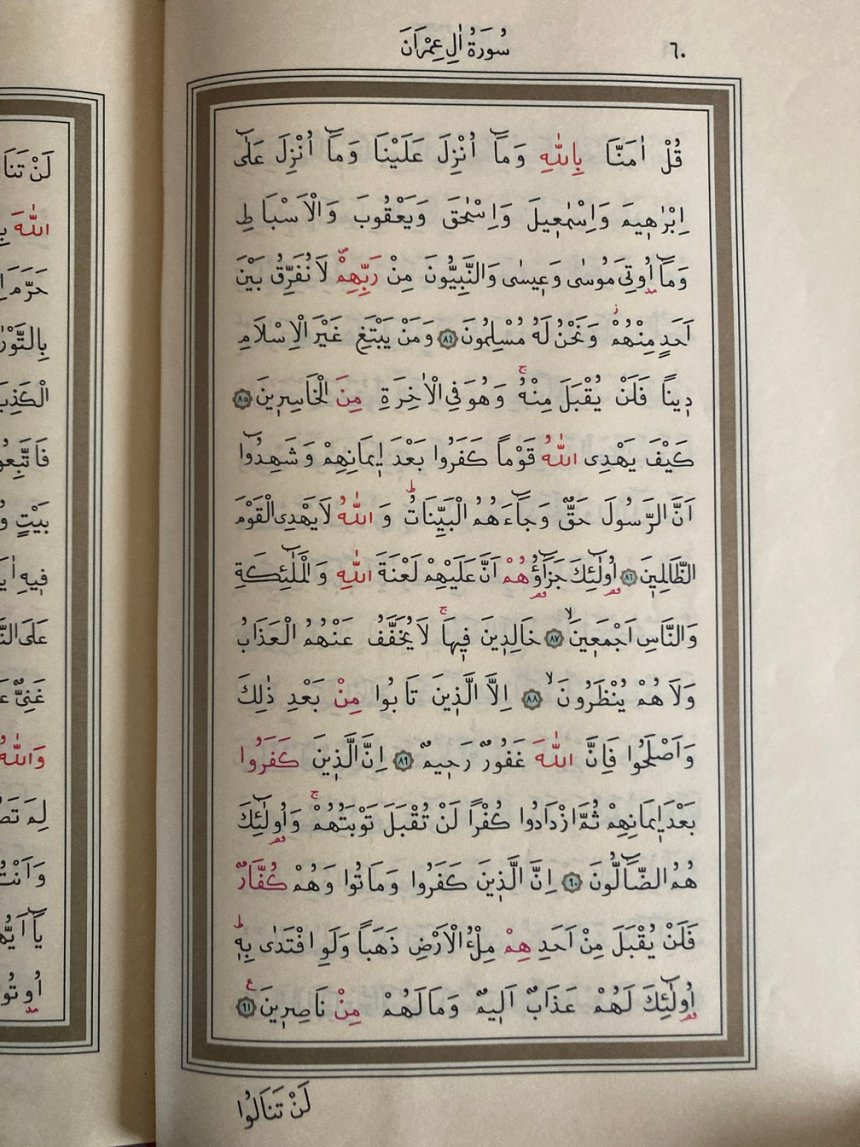 ٦٠
سُورَةُ اٰلِ عِمْرَانَ
قُلْ اٰمَنَّا بِاللّٰهِ وَمَٓا اُنْزِلَ عَلَيْنَا وَمَٓا اُنْزِلَ عَلٰٓى
اِبْرٰهِيمَ وَاِسْمٰعِيلَ وَاِسْحٰقَ وَيَعْقُوبَ وَالْاَسْبَاطِ
وَمَٓا اُوتِيَ مُوسٰى وَعِيسٰى وَالنَّبِيُّونَ مِنْ رَبِّهِمْۖ لَا نُفَرِّقُ بَيْنَ
اَحَدٍ مِنْهُمْۘ وَنَحْنُ لَهُ مُسْلِمُونَ ٨٤ وَمَنْ يَبْتَغِ غَيْرَ الْاِسْلَامِ
دِيناً فَلَنْ يُقْبَلَ مِنْهُۚ وَهُوَ فِي الْاٰخِرَةِ مِنَ الْخَاسِرِينَ ٨٥
كَيْفَ يَهْدِي اللّٰهُ قَوْماً كَفَرُوا بَعْدَ اِيمَانِهِمْ وَشَهِدُٓوا
اَنَّ الرَّسُولَ حَقٌّ وَجَٓاءَهُمُ الْبَيِّنَاتُۜ وَاللّٰهُ لَا يَهْدِي الْقَوْمَ
الظَّالِمِينَ ٨٦ اُو۬لٰٓئِكَ جَزَٓاؤُ۬هُمْ اَنَّ عَلَيْهِمْ لَعْنَةَ اللّٰهِ وَالْمَلٰٓئِكَةِ
وَالنَّاسِ اَجْمَعِينَۙ ٨٧ خَالِدِينَ فِيهَاۚ لَا يُخَفَّفُ عَنْهُمُ الْعَذَابُ
وَلَا هُمْ يُنْظَرُونَۙ ٨٨ اِلَّا الَّذِينَ تَابُوا مِنْ بَعْدِ ذٰلِكَ
وَاَصْلَحُوا فَاِنَّ اللّٰهَ غَفُورٌ رَحِيمٌ ٨٩ اِنَّ الَّذِينَ كَفَرُوا
بَعْدَ اِيمَانِهِمْ ثُمَّ ازْدَادُوا كُفْراً لَنْ تُقْبَلَ تَوْبَتُهُمْۚ وَاُو۬لٰٓئِكَ
هُمُ الضَّٓالُّونَ ٩٠ اِنَّ الَّذِينَ كَفَرُوا وَمَاتُوا وَهُمْ كُفَّارٌ
فَلَنْ يُقْبَلَ مِنْ اَحَدِهِمْ مِلْءُ الْاَرْضِ ذَهَباً وَلَوِ افْتَدٰى بِهِۜ
اُو۬لٰٓئِكَ لَهُمْ عَذَابٌ اَلِيمٌ وَمَا لَهُمْ مِنْ نَاصِرِينَ ٩١
لَنْ تَنَالُوا
لَنْ
اللّٰهَ
حَرَّمَ
بَيْتٍ
فِيهِ
عَلَى
غَنِيٌّ
وَاللّٰهُ
لِمَ